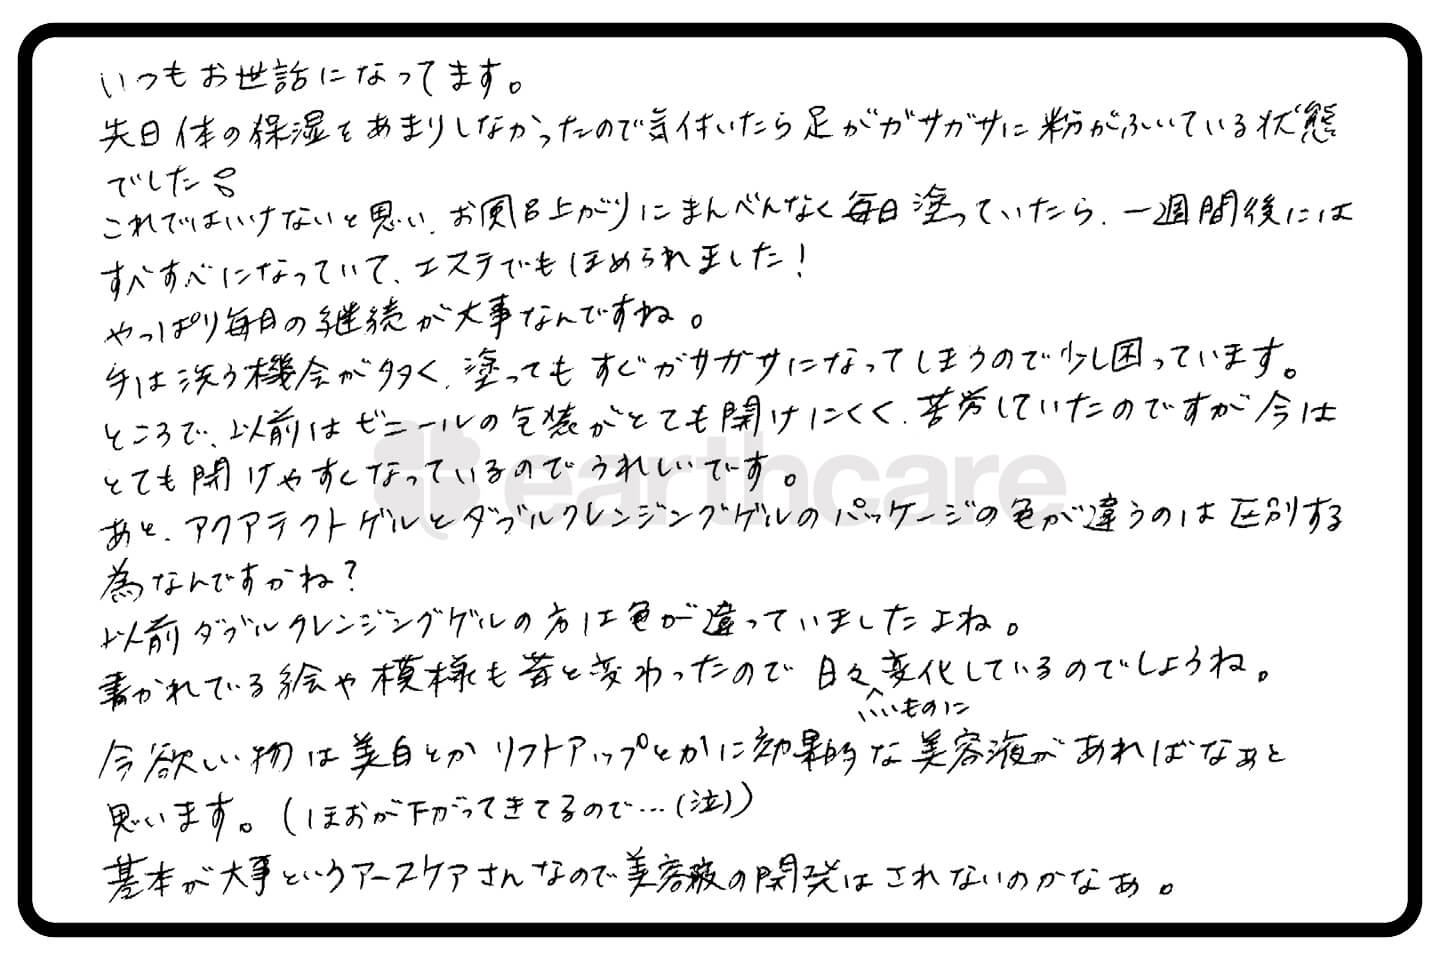 いつもお世話になってます。
先日体の保湿をあまりしなかったので気付いたら足がガサガサに粉がふいている状態
でした
これではいけないと思い、お風呂上がりにまんべんなく毎日塗っていたら、一週間後には
すべすべになっていて、エステでもほめられました!
やっぱり毎日の継続が大事なんですね。
手は洗う機会が多く、塗ってもすぐガサガサになってしまうので少し困っています。
ところで、以前はビニールの包装がとても開けにくく、苦労していたのですが今は
とても開けやすくなっているのでうれしいです。
earthcare
あと、アクアテクトゲルとダブルクレンジングゲルのパッケージの色が違うのは区別する
為なんですかね?
以前ダブルクレンジングゲルの方は色が違っていましたよね。
書かれている絵や模様も昔と変わったので日々変化しているのでしょうね。
いいものに
今欲しい物は美白とかリフトアップとかに効果的な美容液があればなぁと
思います。(ほおが下がってきてるので…(泣))
基本が大事というアースケアさんなので美容液の開発はされないのかなぁ。